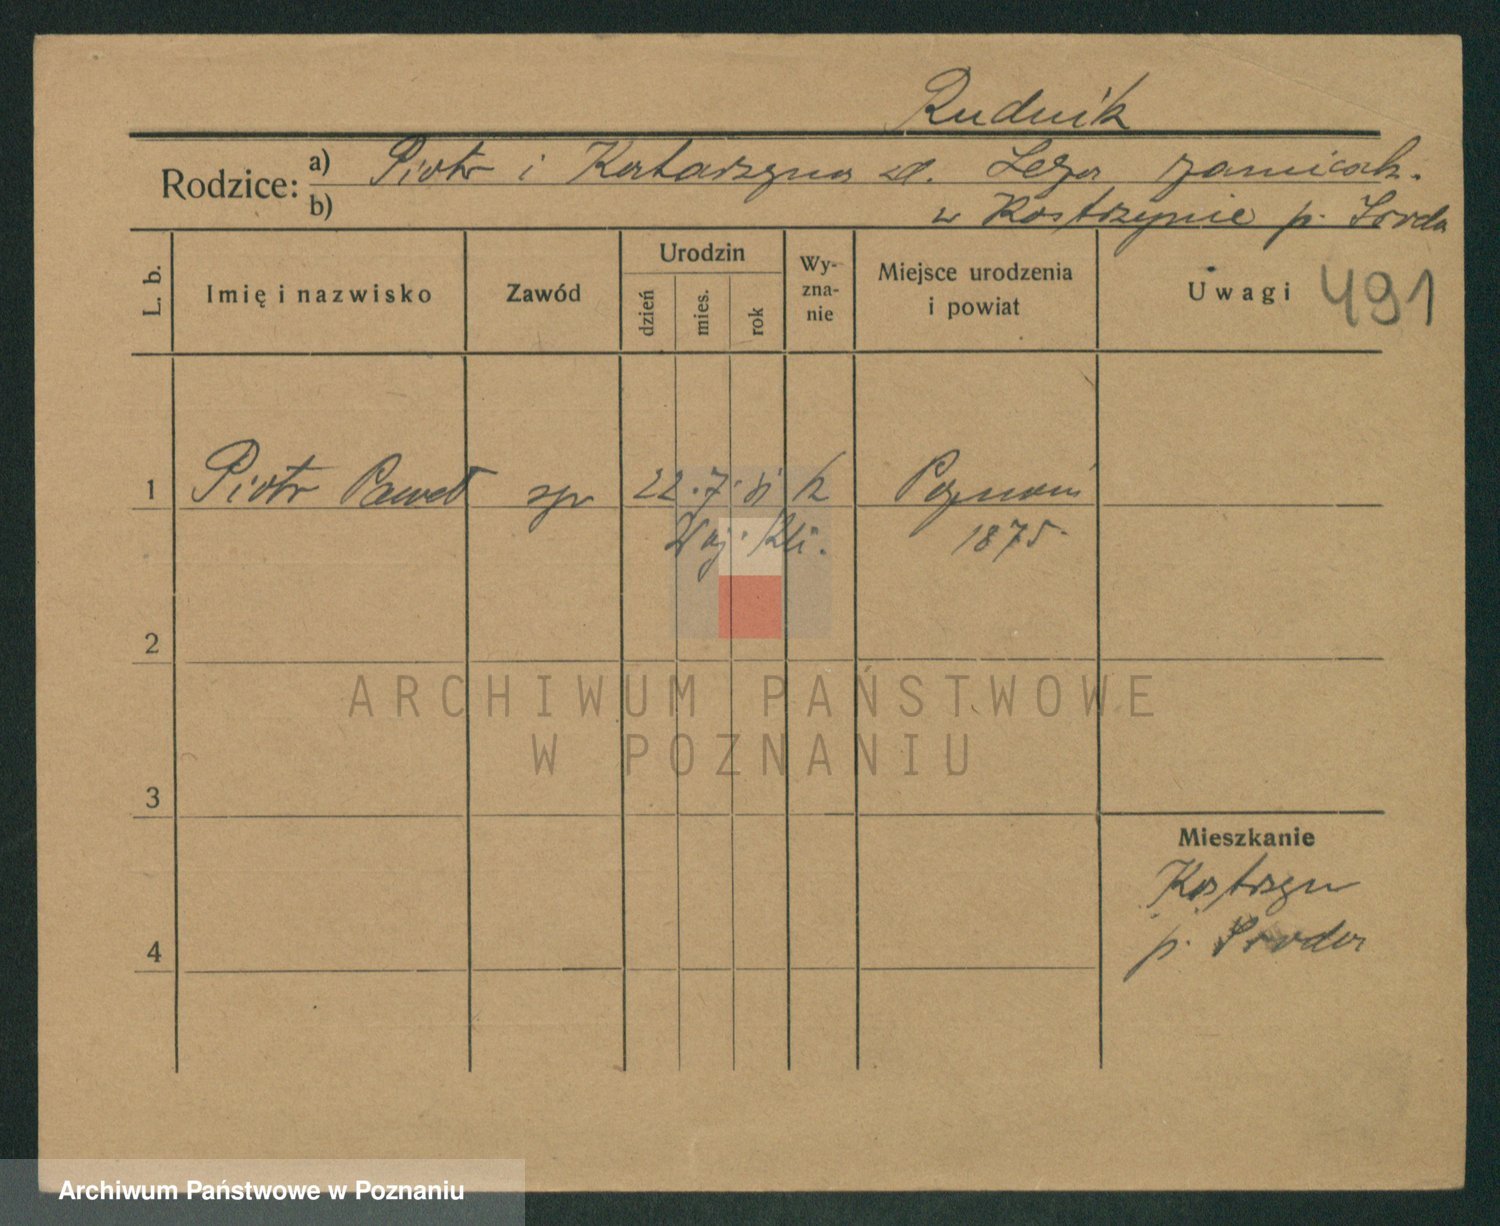 Rudnik
Rodzice: a) Piotr i Katarzyna zd. zamieszk.
b) w Kostrzynie p. Sroda
L. b. Imię i nazwisko Zawód Urodzin dzień mies. rok Wy-zna-nie Miejsce urodzenia i powiat Uwagi 491
1 Piotr Paweł 22.7. k Poznań
1875
2
3
Mieszkanie
Kostrzyn
p. Sroda
4
ARCHIWUM PAŃSTWOWE
W POZNANIU
Archiwum Państwowe w Poznaniu